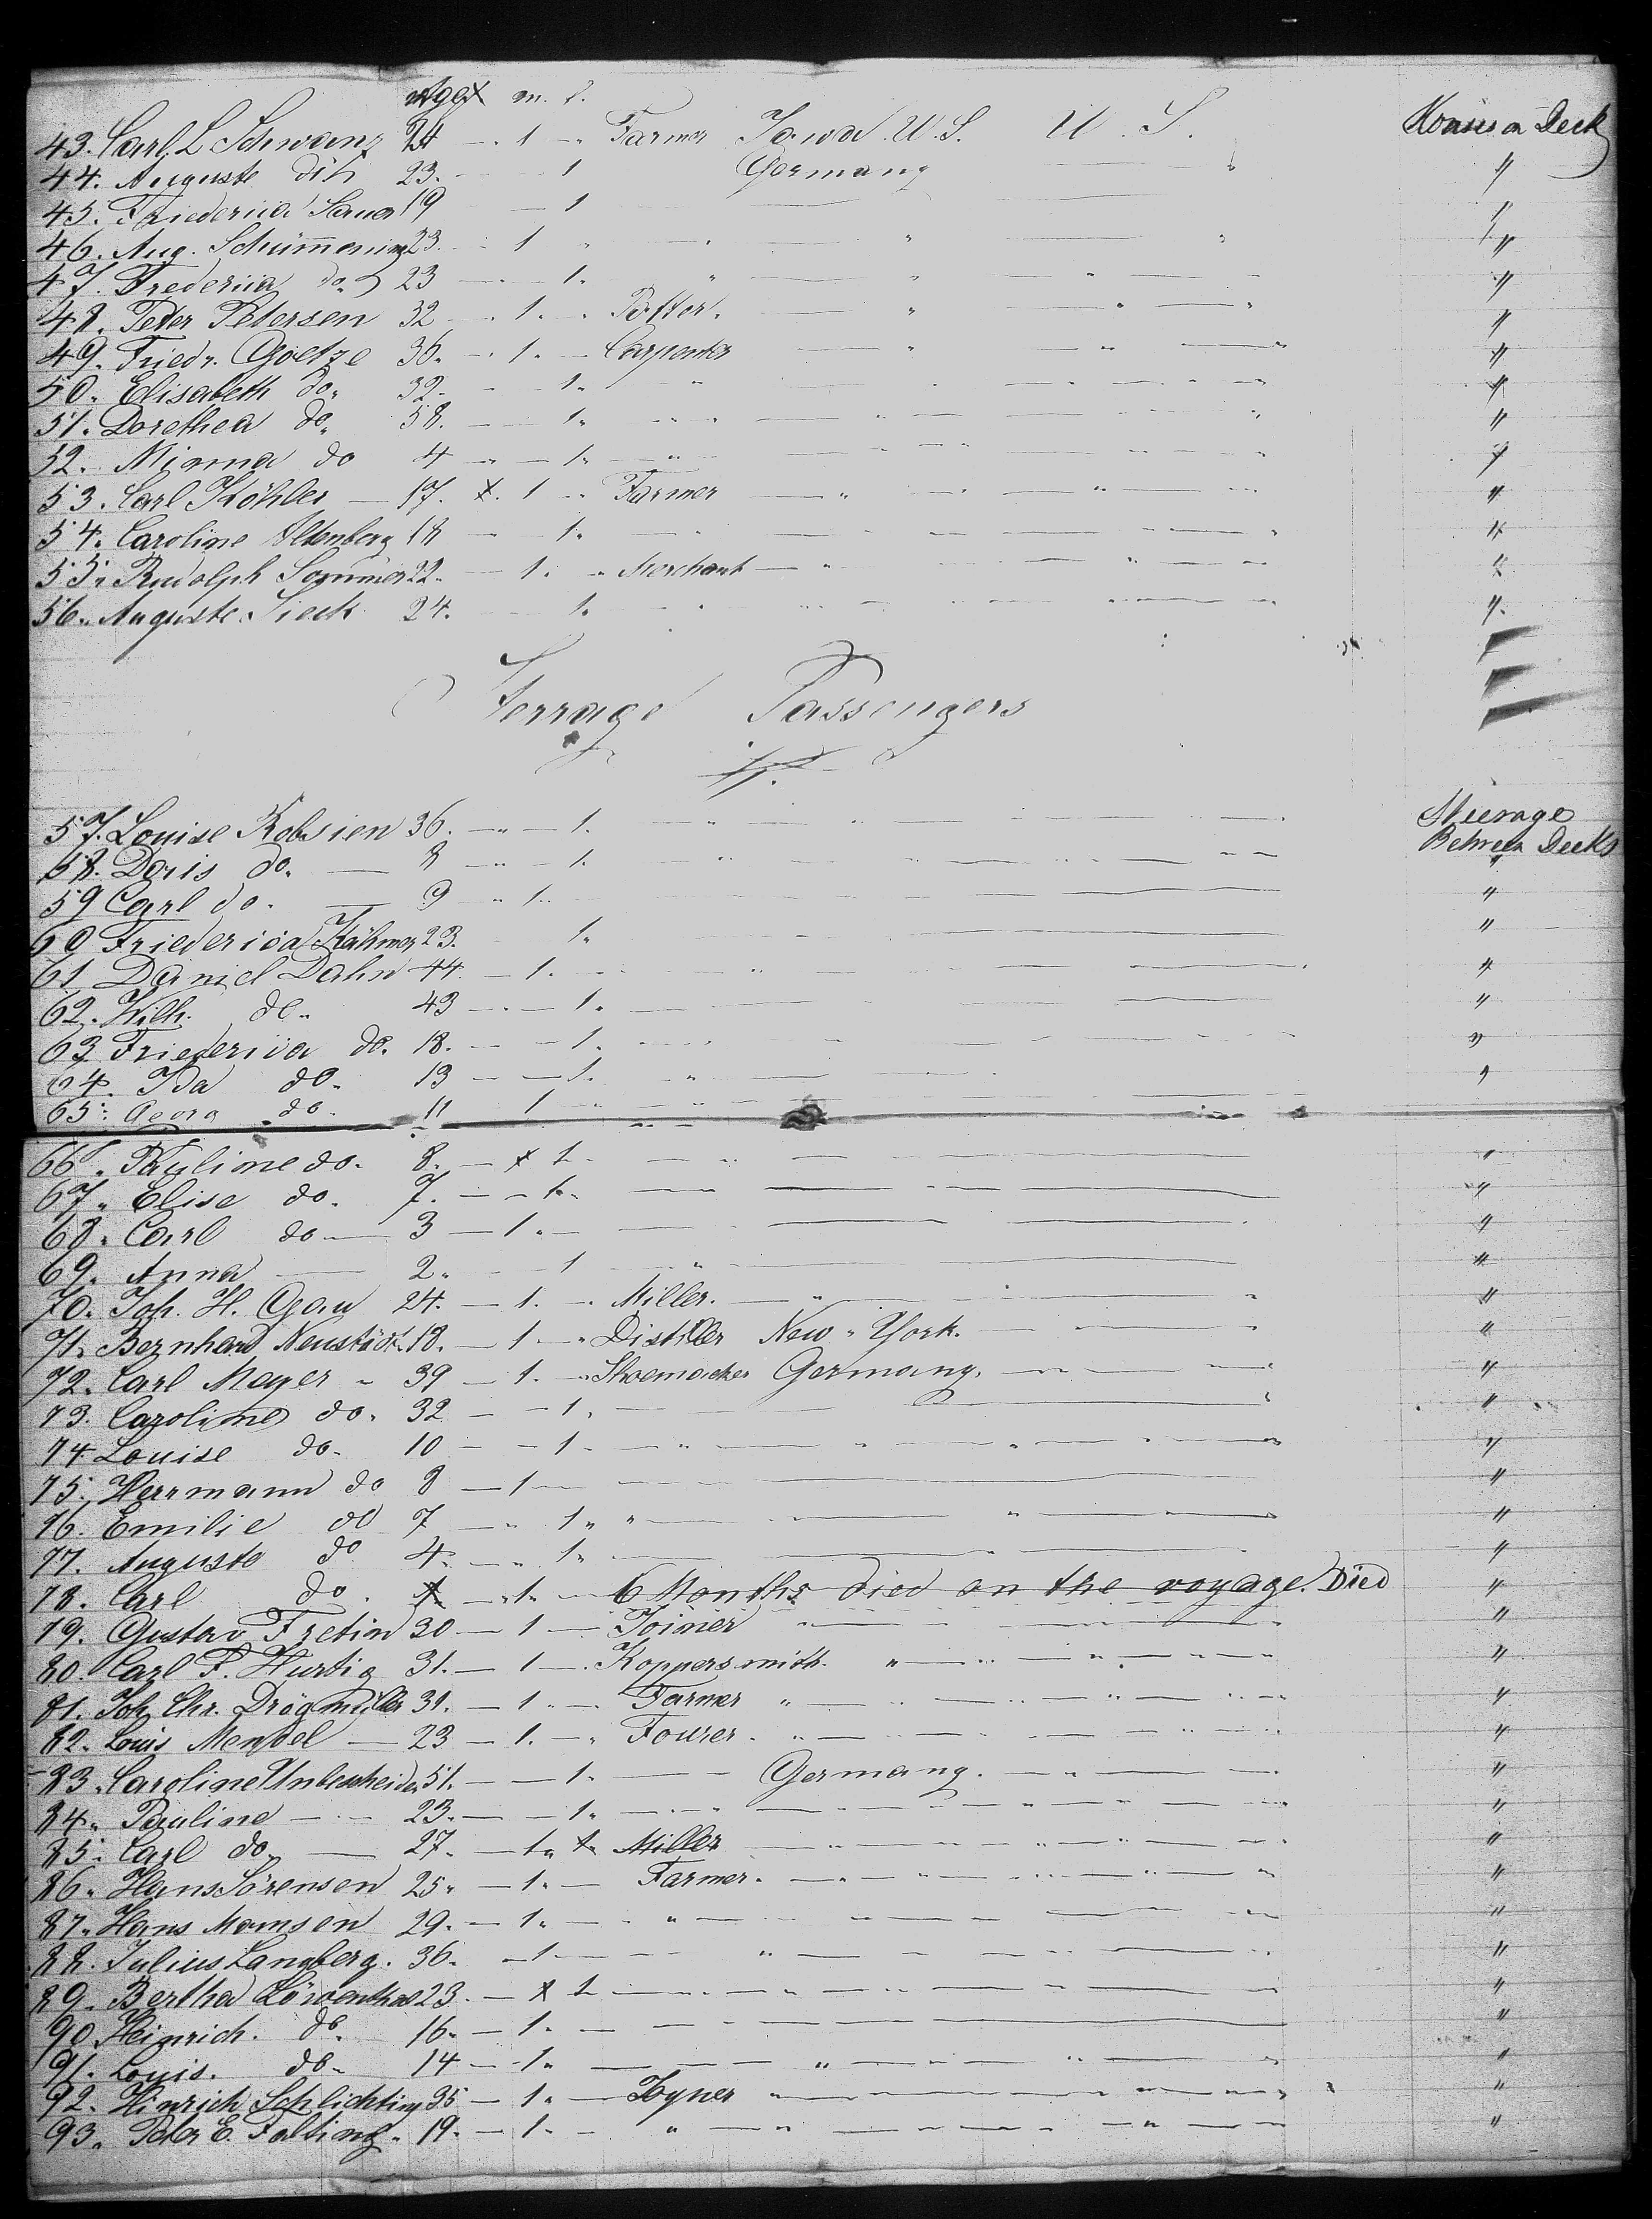 Age m. f.
43. Carl L Schwanz 24 - 1 " Farmer Iowa U.S. U. S. House on Deck
44. Auguste dito 23. - 1 Germany " "
45. Friederica Sauer 19 — 1 — — "
46. Aug. Schümmering 23. - 1 " " " " "
47. Frederica do. 23 - 1. " " " "
48. Peter Petersen 32 - 1. " Potter. " " " "
49. Friedr. Goetze 36. - 1. - Carpenter " " " "
50. Elisabeth do. 32. - 1. " "
51. Dorethea do. 58. - 1. " "
52. Minna do 4 - 1. " "
53. Carl Köhler — 17. x. 1 - Farmer " " "
54. Caroline Altenberg 18 - 1. "
55. Rudolph Sommer 22. - 1. " Merchant — " " "
56. Auguste Sieck 24. - 1. "
Sterrage Passengers
57. Louise Robsien 36. - 1. " Steerage
58. Doris do. — 8 - 1. " Between Decks
59 Carl do. — 9 " 1. "
60 Friederica Kähmer 23. 1. "
61 Daniel Dahn 44 - 1. " "
62. Wilh. do. 43 - 1. "
63 Friederica do. 18. - 1. "
64. Ida do. 13 - 1. " "
65. Georg do. 11 1 "
66. Pauline do. 8. - x 1. "
67. Elise do. 7. - 1. "
68. Carl do — 3 - 1. "
69. Anna — 2. - 1 " "
70. Joh. H. Gau 24. - 1. - Miller. " "
71. Bernhard Neustädt 18. - 1 - Distiller New-York. "
72. Carl Mayer - 39 - 1. " Shoemacker Germany. "
73. Caroline do. 32 - 1. "
74 Louise do. 10 - 1. " " "
75. Herrmann do 8 - 1 "
76. Emilie do 7 - 1. " " "
77. Auguste do 4. - 1. "
78. Carl do. - 1. - 6 Months died on the voyage. Died "
79. Gustav Fretin 30 - 1 - Joiner " "
80. Carl F. Hurtig 31. - 1 - Koppersmith. " "
81. Joh. Chr. Drögmüller 31. - 1 - Farmer " "
82. Louis Mendel — 23 - 1. - Fourer. " "
83. Caroline Unbescheiden 51. - 1. — Germany. "
84. Pauline — 23. - 1. "
85. Carl do. — 27. - 1. Miller "
86. Hans Sörensen 25. - 1. - Farmer. "
87. Hans Momsen 29. - 1. - " "
88. Julius Langberg. 36. - 1 - " "
89. Bertha Löwenthal 23. - x 1 "
90 Heinrich. do. 16. - 1. "
91. Louis. do. 14 - 1. " "
92. Hinrich Schlichting 35 - 1. - "
93. Peter E. Falting. 19. - 1. - " "